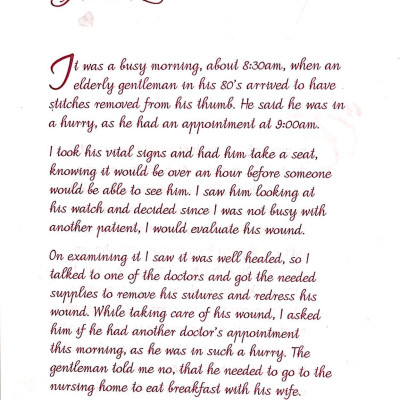 It was a busy morning, about 8:30am, when an
elderly gentleman in his 80's arrived to have
stitches removed from his thumb. He said he was in
a hurry, as he had an appointment at 9:00am.
I took his vital signs and had him take a seat,
knowing it would be over an hour before someone
would be able to see him. I saw him looking at
his watch and decided since I was not busy with
another patient, I would evaluate his wound.
On examining it I saw it was well healed, so I
talked to one of the doctors and got the needed
supplies to remove his sutures and redress his
wound. While taking care of his wound, I asked
him if he had another doctor's appointment
this morning, as he was in such a hurry. The
gentleman told me no, that he needed to go to the
nursing home to eat breakfast with his wife.